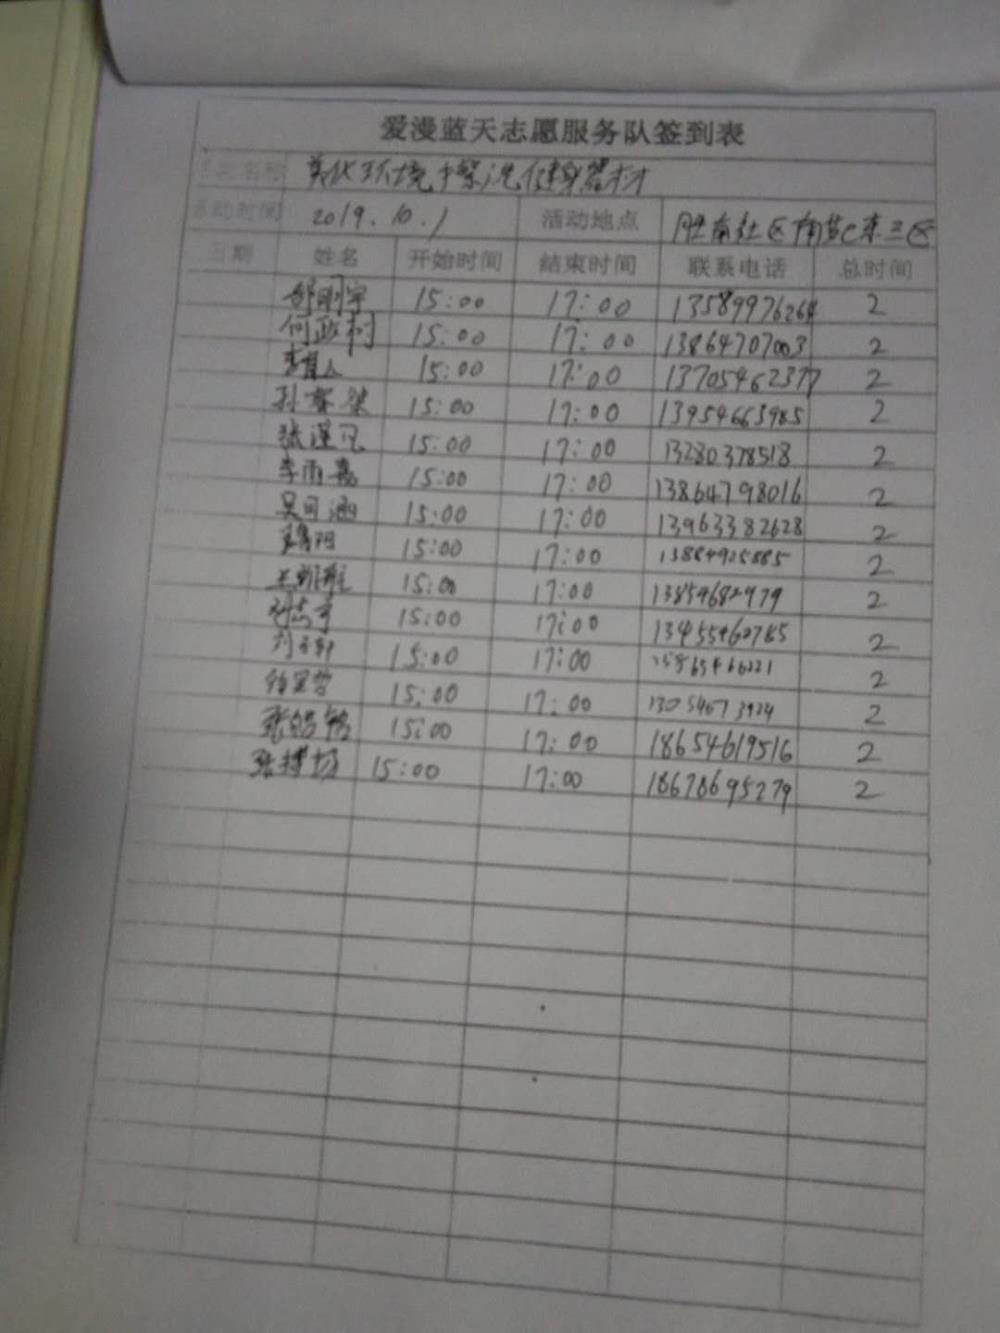 爱漫蓝天志愿服务队签到表
名称 美化环境 擦洗健身器材
活动时间 2019.10.1 活动地点 胜南社区 东三区
日期 姓名 开始时间 结束时间 联系电话 总时间
15:00 17:00 13589976264 2
何政 15:00 17:00 13864707003 2
15:00 17:00 13705462377 2
孙 15:00 17:00 13954663985 2
张 15:00 17:00 13280378518 2
李雨嘉 15:00 17:00 13864798016 2
吴可涵 15:00 17:00 13963382628 2
阳 15:00 17:00 2
王凯 15:00 17:00 13854682979 2
15:00 17:00 13455460785 2
刘子 15:00 17:00 2
15:00 17:00 13054673924 2
张皓铭 15:00 17:00 18654619516 2
张博 15:00 17:00 18678695279 2